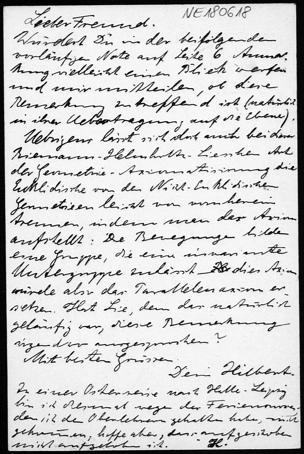 NE180618
Lieber Freund.
Würdest Du in der beifolgenden
vorläufigen Note auf Seite 6 Anmer-
kung vielleicht einen Blick werfen
und mir mitteilen, ob diese
Bemerkung zutreffend ist (natürlich
in ihrer Uebertragung auf die Ebene).
Uebrigens lässt sich doch auch bei der
Riemann-Helmholtz-Lieschen Art
der Geometrie-Axiomatisierung die
Euklidische von den Nicht-Euklidischen
Geometrien leicht von vornherein
trennen, indem man das Axiom
aufstellt: Die Bewegungen bilden
eine Gruppe, die eine invariante
Untergruppe zulässt dies Axiom
würde also das Parallelenaxiom er-
setzen. Hat Lie, dem das natürlich
geläufig war, diese Bemerkung
irgendwo ausgesprochen?
Mit besten Grüssen
Dein Hilbert.
Zu einer Osterreise nach Halle-Leipzig
bin ich diesmal wegen des Ferienkursus,
den ich den Oberlehrern gehalten habe, nicht
gekommen; hoffe aber, dass aufgeschoben
nicht aufgehoben ist. H.